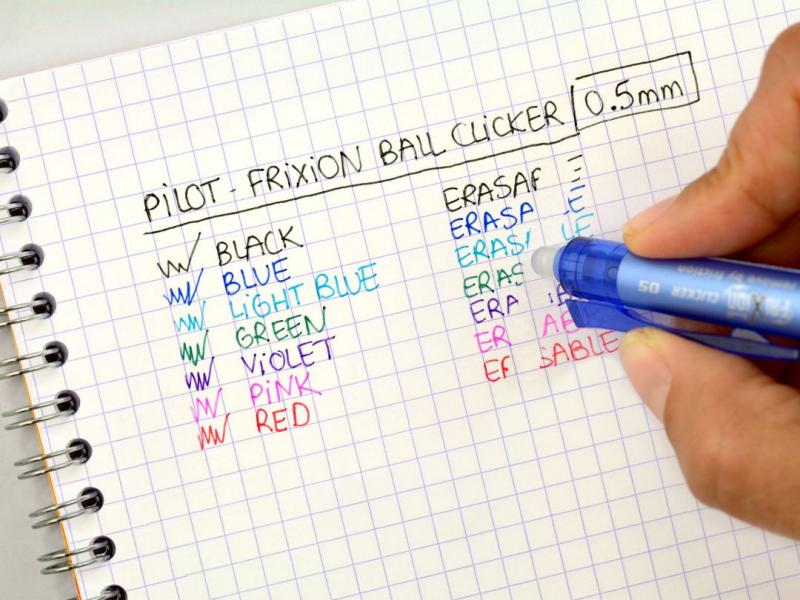 PiLOT - FRiXiON BALL CLiCKER 0.5mm
BLACK
BLUE
LiGHT BLUE
GREEN
ViOLET
PiNK
RED
ERASA E
ERASA E
ERAS LE
ERAS
ERA
ER AB
E SABLE
FriXion CLICKER 05